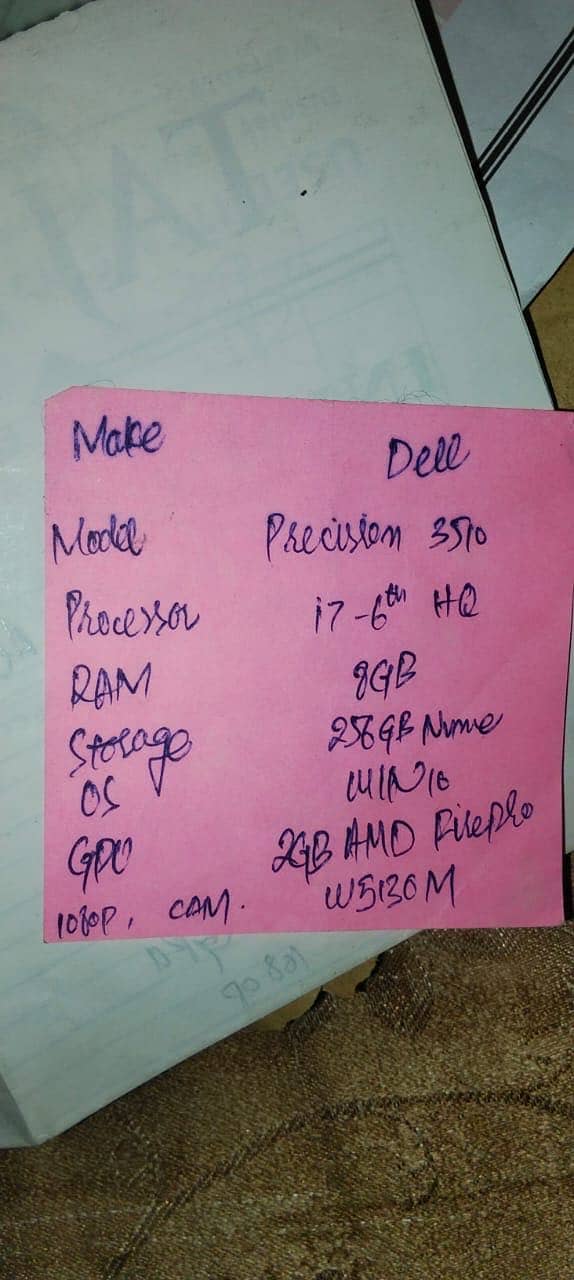 Make Dell
Model Precision 3510
Processor i7-6th HQ
RAM 8GB
Storage 256GB Nvme
OS WIN10
GPU 2GB AMD Firepro
W5130M
1080P, CAM.
TAJ